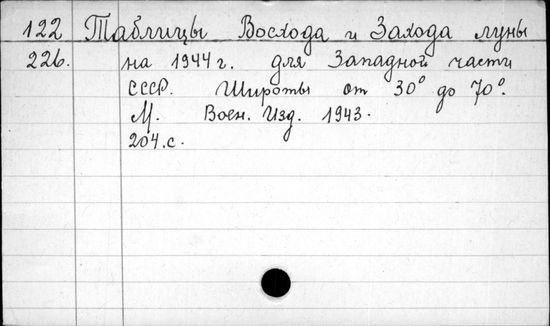 122 Таблицы Восхода и Захода луны
226. на 1944 г. для Западной части
СССР. Широты от 30° до 70°.
М. Воен. Изд. 1943.
204.с.